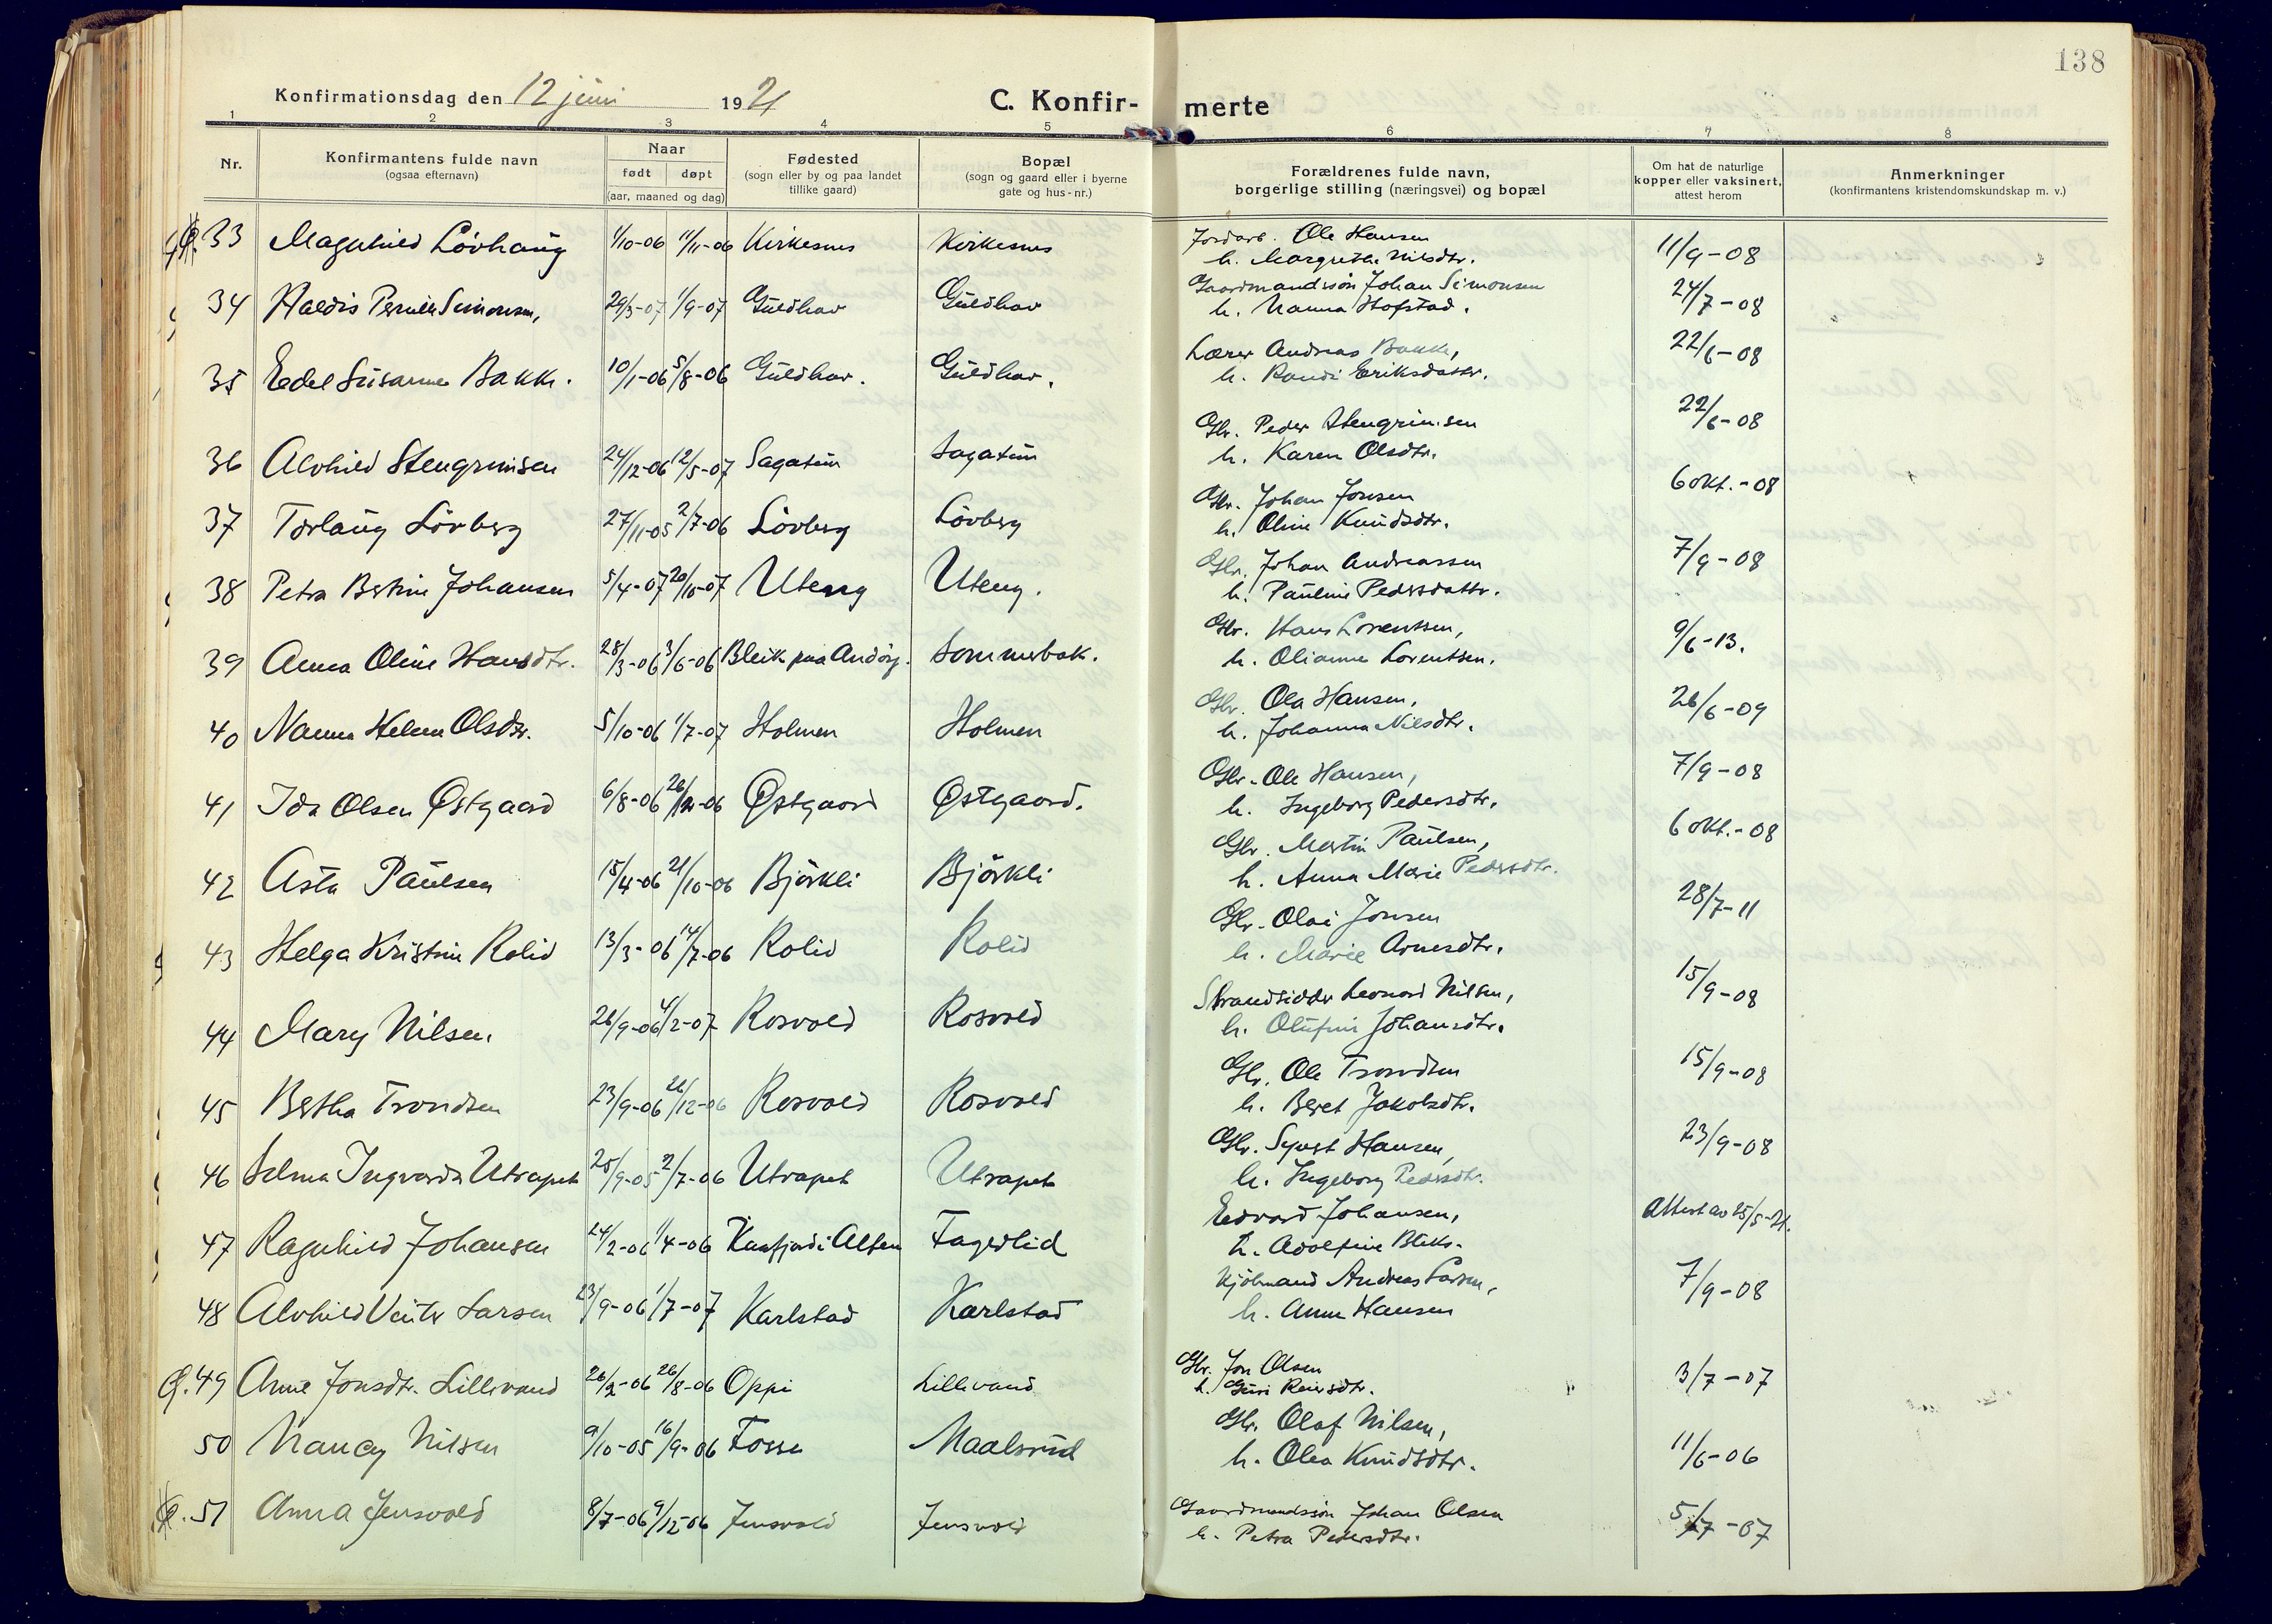 138
Konfirmationsdag den 12 juni 1921
C. Konfir-merte
1 2 3 4 5 6 7 8
Nr.
Konfirmantens fulde navn
(ogsaa efternavn)
Naar
født døpt
(aar, maaned og dag)
Fødested
(sogn eller by og paa landet
tillike gaard)
Bopæl
(sogn og gaard eller i byerne
gate og hus-nr.)
Forældrenes fulde navn,
borgerlige stilling (næringsvei) og bopæl
Om hat de naturlige
kopper eller vaksinert,
attest herom
Anmerkninger
(konfirmantens kristendomskundskap m. v.)
33 Magnhild Lövhaug 1/10-06 11/11-06 Kirkesnes Kirkesnes Jordarb. Ole Hansen 11/9-08
h. Margrethe Nilsdtr.
34 Haldis Pernille Simonsen, 29/3-07 1/9-07 Guldhav Guldhav Gaardmandssön Johan Simonsen 24/7-08
h. Nanna Hofstad.
35 Edel Susanne Bakke. 10/1-06 5/8-06 Guldhav. Guldhav. Lærer Andreas Bakke, 22/6-08
h. Randi Eriksdatter.
36 Alvhild Stengrimsen 24/12-06 12/5-07 Sagatun Sagatun Gbr. Peder Stengrimsen 22/6-08
h. Karen Olsdtr.
37 Torlaug Lövberg 27/11-05 2/7-06 Lövberg Lövberg Gbr. Johan Jonsen 6 okt.-08
h. Oline Knudsdtr.
38 Petra Bertine Johansen 5/4-07 20/10-07 Uteng Uteng. Gbr. Johan Andreassen 7/9-08
h. Pauline Pedersdattr.
39 Anna Oline Hansdtr. 28/3-06 3/6-06 Bleik paa Andöy. Sommerbak. Gbr. Hans Lorentsen, 9/6-13.
h. Olianna Lorentsen.
40 Nanna Helene Olsdtr. 5/10-06 1/7-07 Holmen Holmen Gbr. Ola Hansen, 26/6-09
h. Johanna Nilsdtr.
41 Ida Olsen Østgaard 6/8-06 26/12-06 Østgaard Østgaard. Gbr. Ole Hansen, 7/9-08
h. Ingeborg Pedersdtr.
42 Asta Paulsen 15/4-06 21/10-06 Björkli Björkli Gbr. Martin Paulsen, 6 okt.-08
h. Anna Marie Pedersdtr.
43 Helga Kristine Rolid 13/3-06 14/7-06 Rolid Rolid Gbr. Olai Jonsen 28/7-11
h. Marie Arnesdtr.
44 Mary Nilsen. 26/9-06 4/2-07 Rosvold Rosvold Strandsidder Leonard Nilsen, 15/9-08
h. Olufine Johansdtr.
45 Bertha Trondsen 23/9-06 26/12-06 Rosvold Rosvold Gbr. Ole Trondsen 15/9-08
h. Beret Jakobsdtr.
46 Selma Ingvarda Utrapet 25/9-05 2/7-06 Utrapet Utrapet Gbr. Syvert Hansen, 23/9-08
h. Ingeborg Pedersdtr.
47 Ragnhild Johansen 24/2-06 1/4-06 Kaafjord i Alten Fagerlid Edvard Johansen, Attest av 25/5-21.
h. Adolfine Bliks.
48 Alvhild Venter Larsen 23/9-06 1/7-07 Karlstad Karlstad Kjöbmand Andreas Larsen, 7/9-08
h. Anne Hansen
49 Anne Jonsdtr. Lillevand 26/2-06 26/8-06 Oppi Lillevand Gbr. Jon Olsen 3/7-07
h. Guri Reiersdtr.
50 Nancy Nilsen 9/10-05 16/9-06 Fosse Maalsrud Gbr. Olaf Nilsen, 11/6-06
h. Olea Knudsdtr.
51 Anna Jensvold 8/7-06 9/12-06 Jensvold Jensvold Gaardmandssön Johan Olsen 5/7-07
h. Petra Pedersdtr.